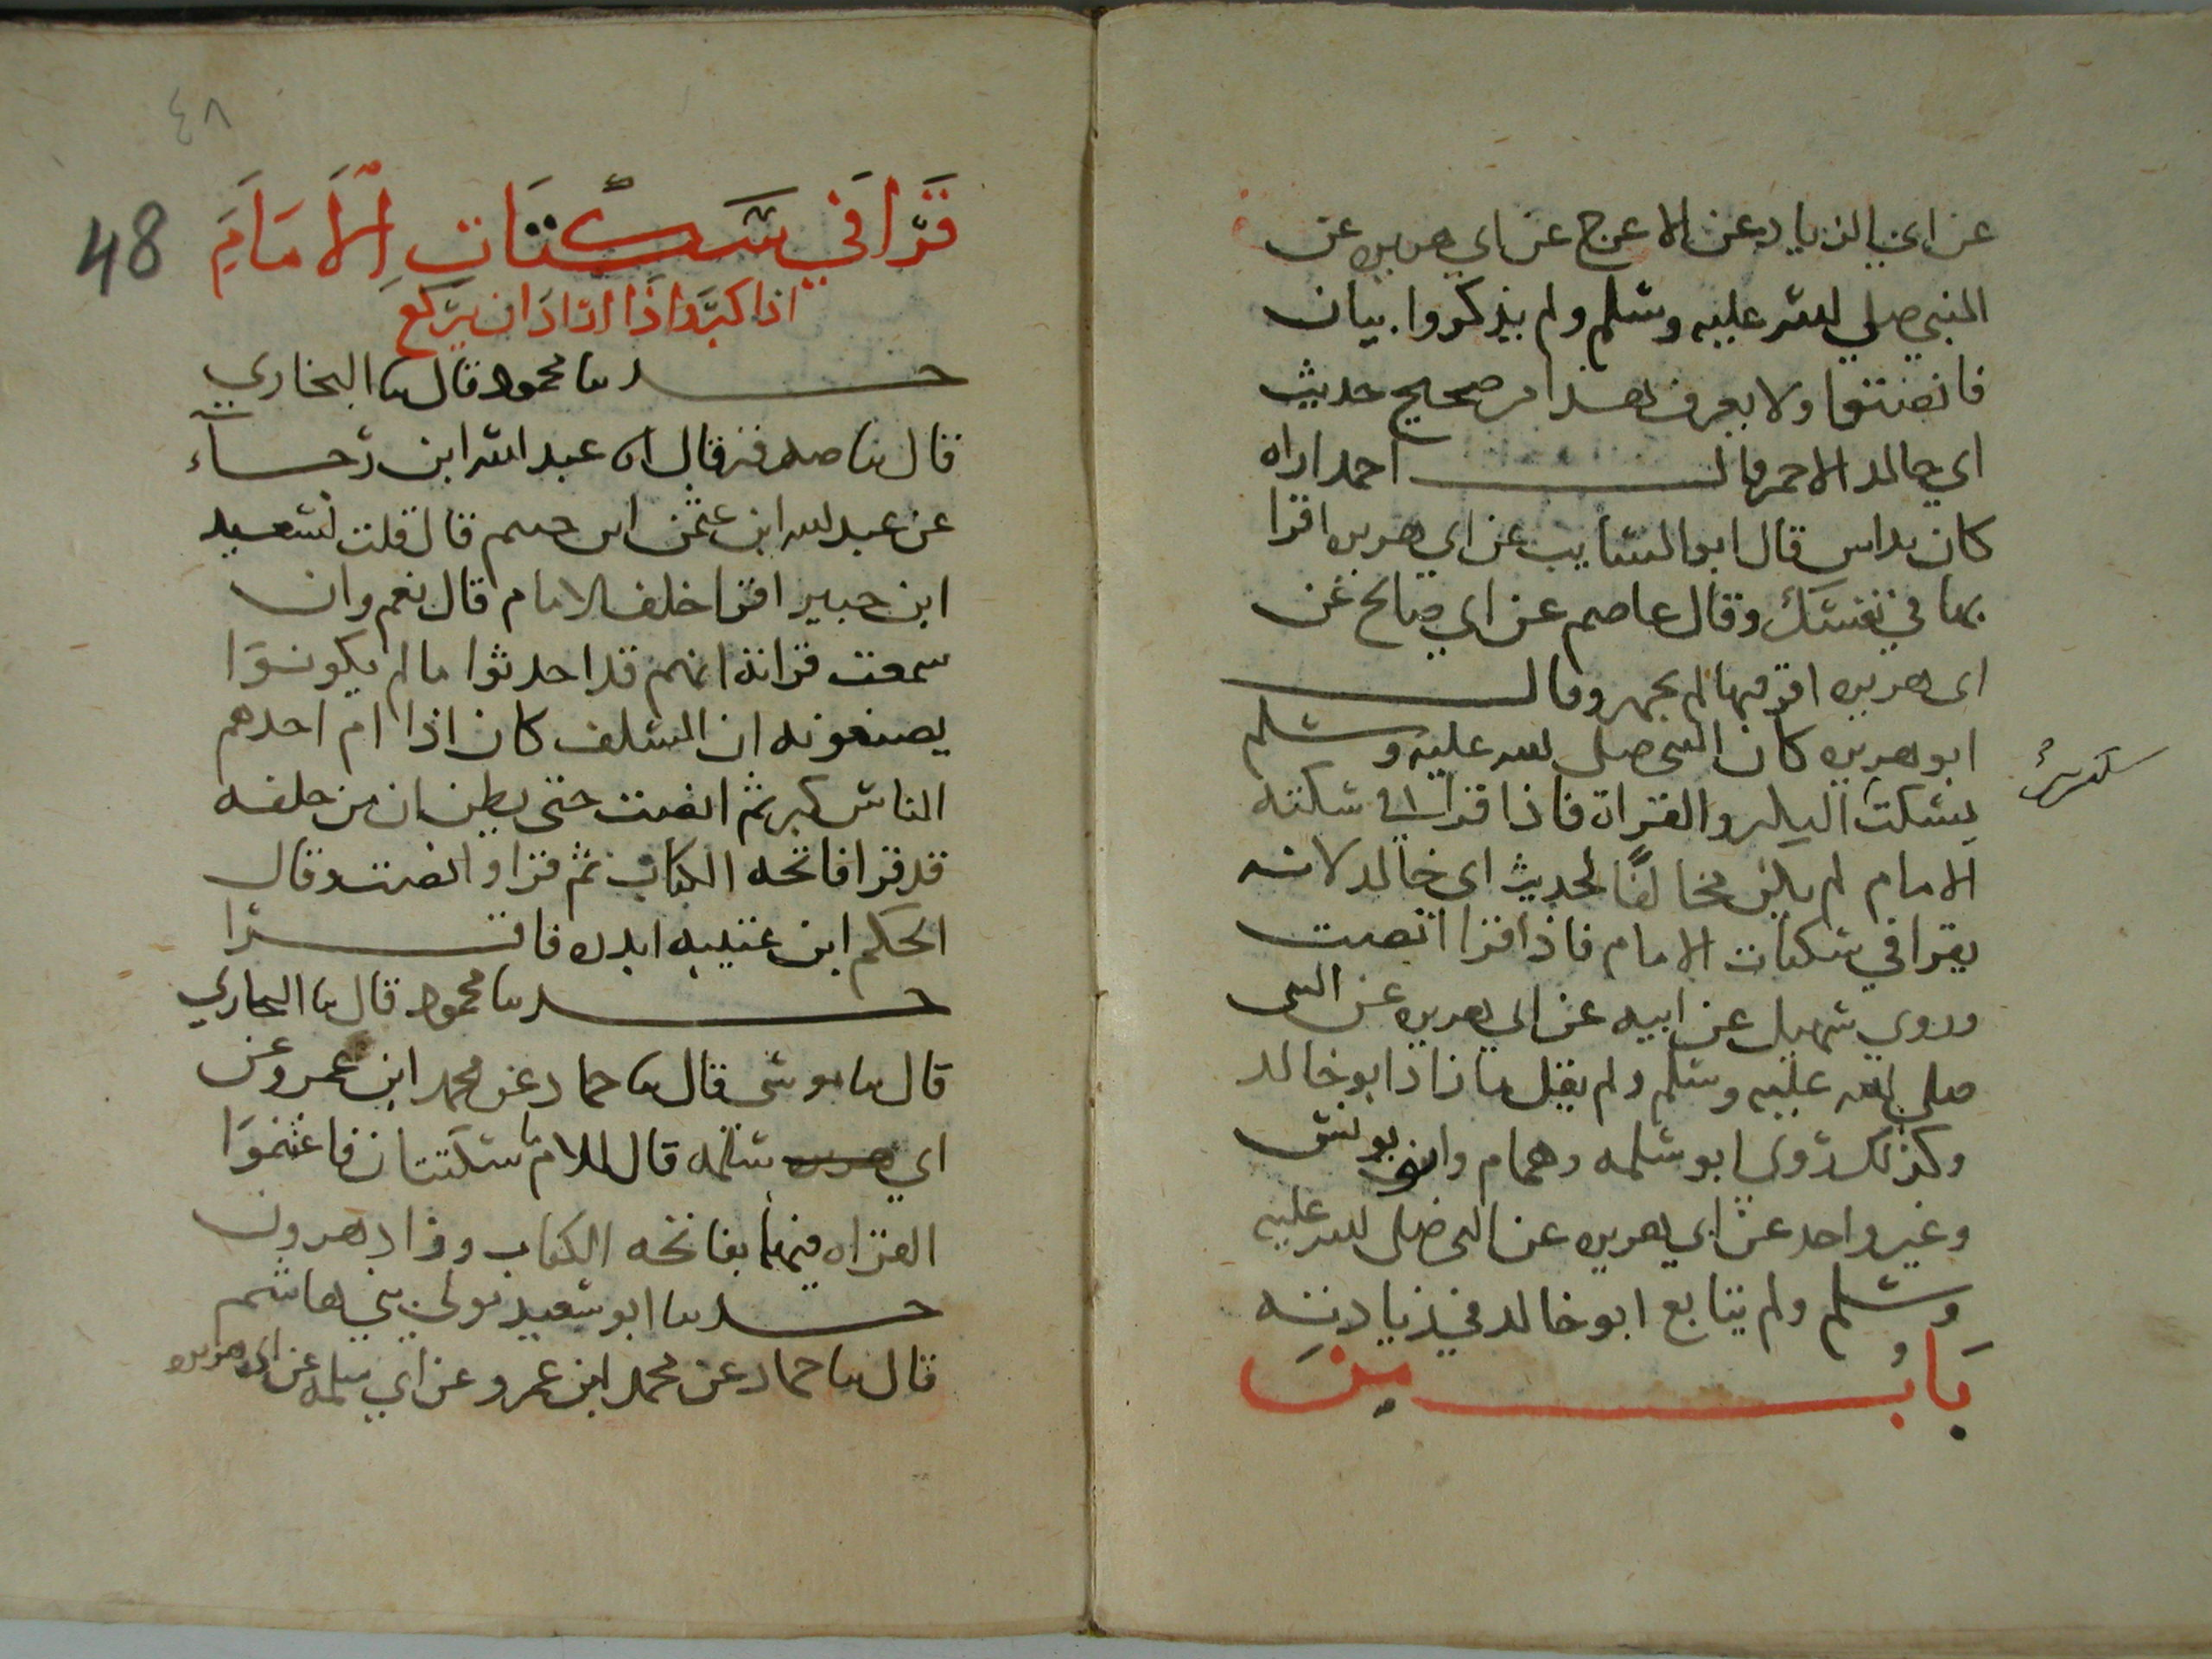 عن ابي الزناد عن الاعرج عن ابي هريره عن
النبي صلي الله عليه وسلم ولم يذكروا بيان
فانصتوا ولا يعرف هذا من صحيح حديث
ابي خالد الاحمر قال احمد اراه
كان يدلس قال ابو السايب عن ابي هريره اقرا
بها في نفسك وقال عاصم عن ابي صالح عن
ابي هريره اقرا فيما لم يجهر وقال
ابو هريره كان النبي صلى الله عليه وسلم
يسكت بين التكبير والقراة فاذا قرا في سكته
الامام لم يكن مخالفًا لحديث ابي خالد لانه
يقرا في سكتات الامام فاذا قرا انصت
وروي سهيل عن ابيه عن ابي هريره عن النبي
صلي الله عليه وسلم ولم يقل ما زاد ابو خالد
وكذلك روي ابو سلمه وهمام وابو يونس
وغير واحد عن ابي هريره عن النبي صلى الله عليه
وسلم ولم يتابع ابو خالد في زيادته
بَابُ مَنْ
٤٨
48
قَرَا في سَكَتَاتِ الْاِمَامِ
اذا كبَّر واذَا ارَادَ ان يَركع
حدثنا محمود قال ثنا البخاري
قال ثنا صدقة قال انا عبد الله ابن رجاء
عن عبد الله ابن عثمن ابن خثيم قال قلت لسعيد
ابن جبير اقرا خلف الامام قال نعم وان
سمعت قراته انهم قد احدثوا ما لم يكونوا
يصنعونه ان السلف كان اذا ام احدهم
الناس كبر ثم انصت حتى يظن ان من خلفه
قد قرا فاتحه الكتاب ثم قرا وانصت وقال
الحكم ابن عتيبه ابدره فاقرا
حدثنا محمود قال ثنا البخاري
قال ثنا موسى قال ثنا حماد عن محمد ابن عمرو عن
ابي سلمه قال للامام سكتتان فاغتنموا
القراه فيهما بفاتحه الكتاب وزاد هرون
حدثنا ابو سعيد مولي بني هاشم
قال ثنا حماد عن محمد ابن عمرو عن ابي سلمه عن ابي هريره